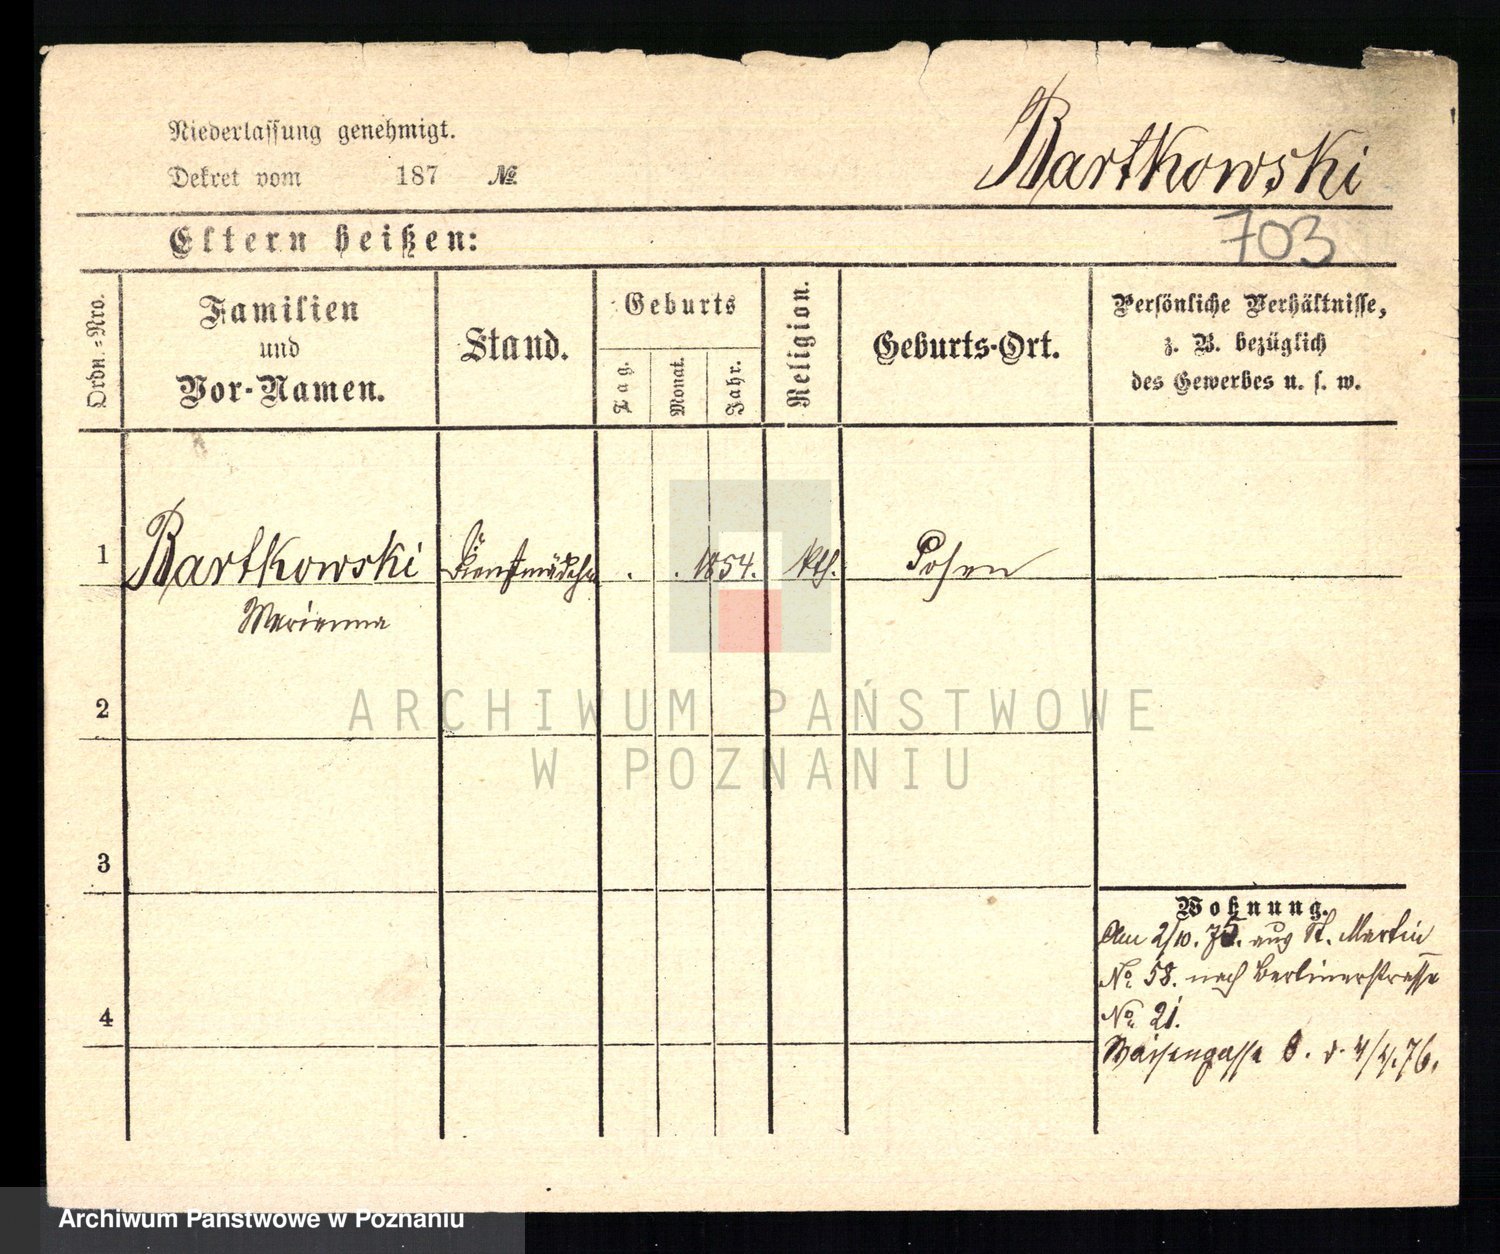 Niederlassung genehmigt.
Dekret vom 187 №
Bartkowski
703
Eltern heißen:
Ordn.=Nro.
Familien
und
Vor-Namen.
Stand.
Geburts
Tag.
Monat.
Jahr.
Religion.
Geburts-Ort.
Persönliche Verhältnisse,
z. B. bezüglich
des Gewerbes u. s. w.
1 Bartkowski Dienstmädchen . . 1854. kth. Posen
Marianna
2
3
4
Wohnung.
Am 2/10. 75. aus St. Martin
No 58. nach Berlinerstrasse
No 21.
Waisengasse 8. d. 4/4. 76.
ARCHIWUM PAŃSTWOWE
W POZNANIU
Archiwum Państwowe w Poznaniu